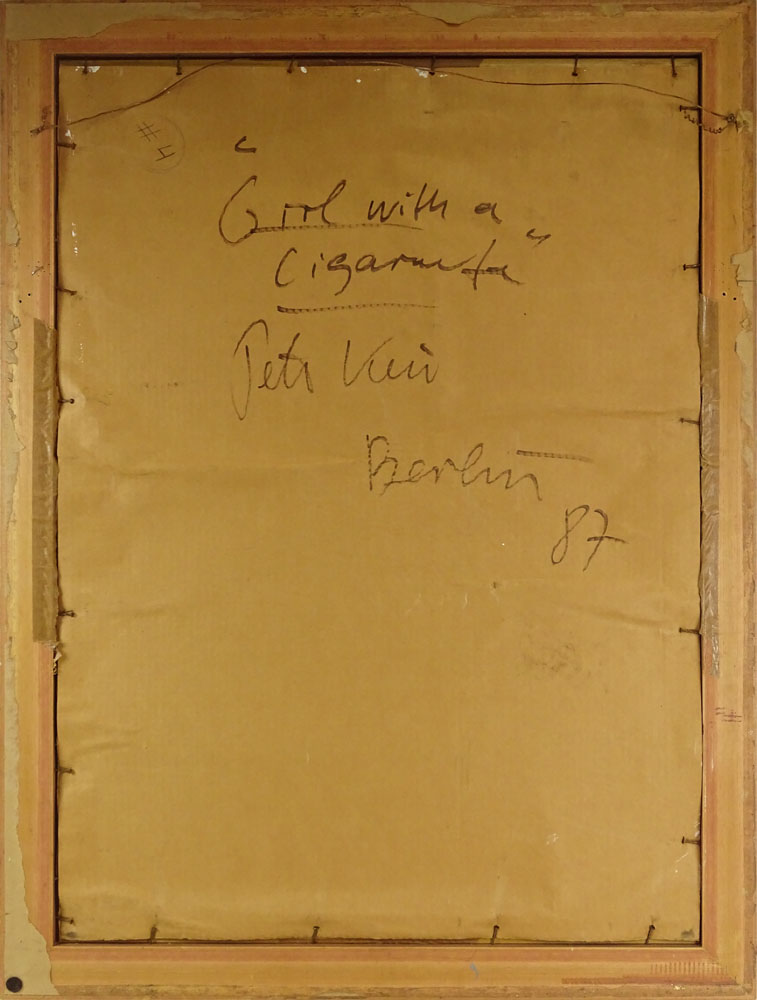 #4
"
Girl with a
Cigarette"
Petr
Berlin
87